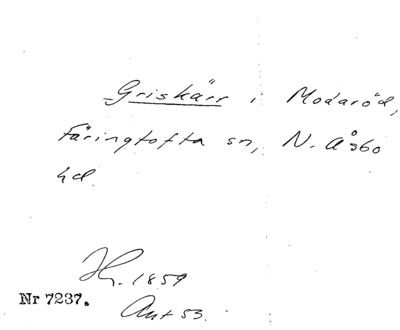 Griskärr i Modaröd,
Färingtofta sn, N. Åsbo
hd.
Hr. 1859
Nr 7237.
Ant 53.